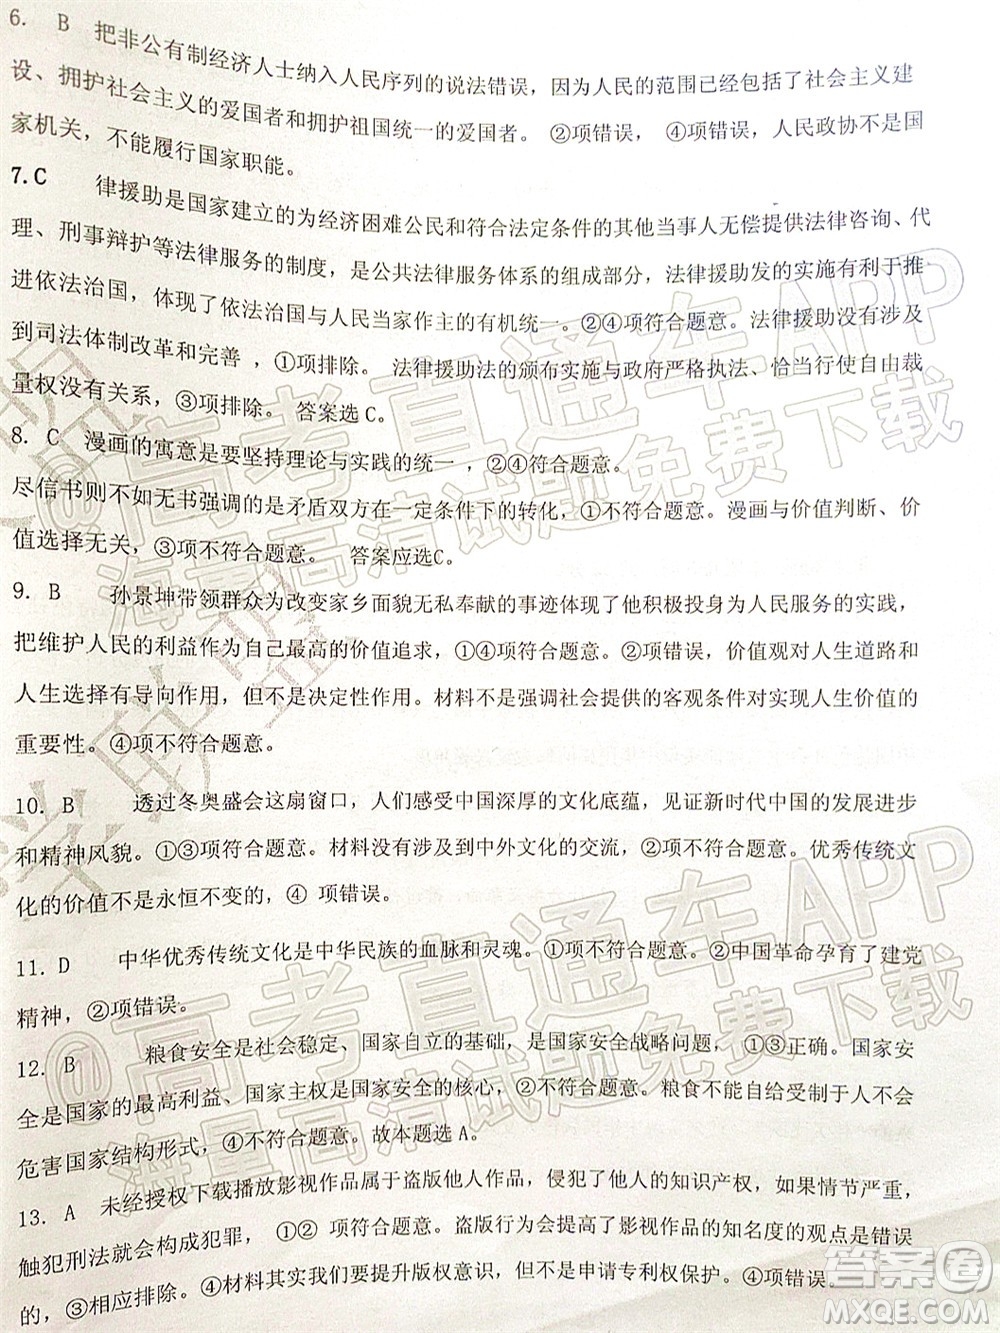 6. B 把非公有制经济人士纳入人民序列的说法错误，因为人民的范围已经包括了社会主义建
设、拥护社会主义的爱国者和拥护祖国统一的爱国者。 ②项错误， ④项错误，人民政协不是国
家机关，不能履行国家职能。
7.C 律援助是国家建立的为经济困难公民和符合法定条件的其他当事人无偿提供法律咨询、代
理、刑事辩护等法律服务的制度，是公共法律服务体系的组成部分，法律援助发的实施有利于推
进依法治国，体现了依法治国与人民当家作主的有机统一。②④项符合题意。法律援助没有涉及
到司法体制改革和完善 ，①项排除。 法律援助法的颁布实施与政府严格执法、恰当行使自由裁
量权没有关系，③项排除。 答案选 C。
8. C 漫画的寓意是要坚持理论与实践的统一 ，②④符合题意。
尽信书则不如无书强调的是矛盾双方在一定条件下的转化，①不符合题意。漫画与价值判断、价
值选择无关，③项不符合题意。 答案应选C。
9. B 孙景坤带领群众为改变家乡面貌无私奉献的事迹体现了他积极投身为人民服务的实践，
把维护人民的利益作为自己最高的价值追求，①④项符合题意。②项错误，价值观对人生道路和
人生选择有导向作用，但不是决定性作用。材料不是强调社会提供的客观条件对实现人生价值的
重要性。④项不符合题意。
10. B 透过冬奥盛会这扇窗口，人们感受中国深厚的文化底蕴，见证新时代中国的发展进步
和精神风貌。①③项符合题意。材料没有涉及到中外文化的交流，②不符合题意。优秀传统文
化的价值不是永恒不变的，④ 项错误。
11. D 中华优秀传统文化是中华民族的血脉和灵魂。①不符合题意。②中国革命孕育了建党
精神，②项错误。
12. B 粮食安全是社会稳定、国家自立的基础，是国家安全战略问题，①③正确。国家安
全是国家的最高利益、国家主权是国家安全的核心，②不符合题意。粮食安全受制于人不会
危害国家结构形式，④不符合题意。故本题选 A。
13. A 未经授权下载播放影视作品属于盗版他人作品，侵犯了他人的知识产权，如果情节严重，
触犯刑法就会构成犯罪， ①② 项符合题意。盗版行为会提高了影视作品的知名度的观点是错误
的，③相应排除。④材料其实我们要提升版权意识，但不是申请专利权保护。④项错误。
@高考直通车APP
海量高清试题免费下载
@高考直通车APP
海量高清试题免费下载
答案圈
MXQE.COM